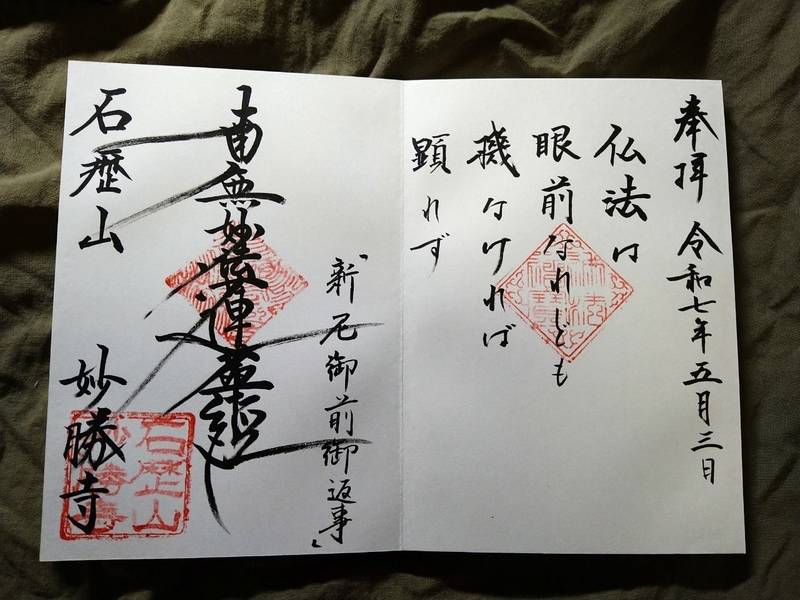 奉拝 令和七年五月三日
仏法は
眼前なれども
機なければ
顕れず
「新尼御前御返事」
南無妙法蓮華経
石歴山 妙勝寺
石歴山
妙勝寺